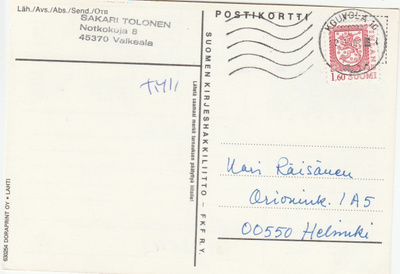 Läh./Avs./Abs./Send./Отп
SAKARI TOLONEN
Notkokuja 8
45370 Valkeala
POSTIKORTTI
KOUVOLA 10
1.60 SUOMI
SUOMEN KIRJESHAKKILIITTO – FKF R.Y.
Lähetä saamasi merkit turnauksen päätyttyä liitolle!
630254 DORAPRINT OY • LAHTI
Kari Räisänen
Orionink. 1A5
00550 Helsinki